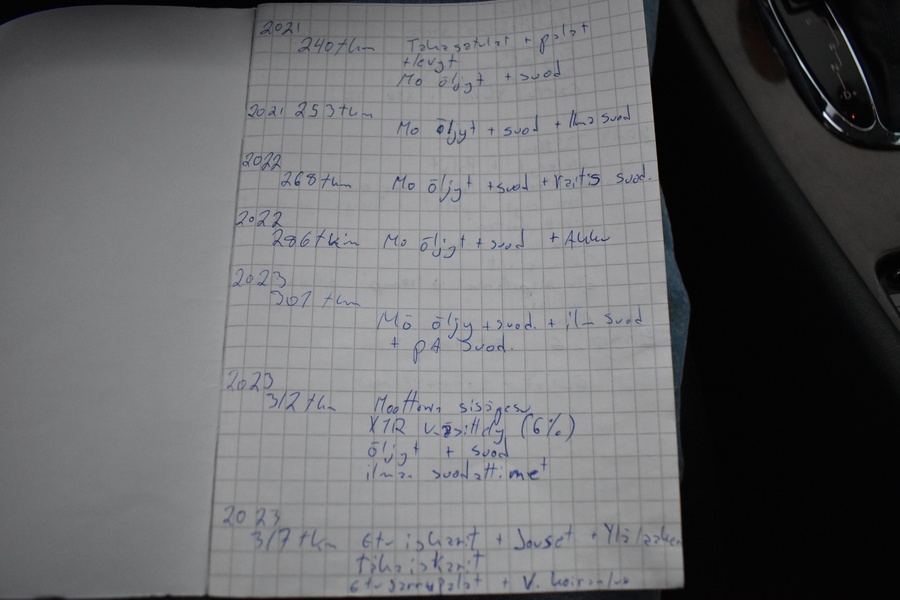 2021
240 tkm Takasatulat + palat
+ levyt
Mo öljyt + suod
2021 253 tkm
Mo öljyt + suod + Ilma suod
2022
268 tkm Mo öljyt + suod + raitis suod.
2022
286 tkm Mo öljyt + suod + Akku
2023
301 tkm
Mo öljy + suod. + ilm suod
+ pA suod.
2023
312 tkm Moottorin sisäpesu
XTR (6%)
öljyt + suod
ilman suodattimet
2023
317 tkm etu iskarit + Jouset +
taka iskarit
etujarrupalat + V.